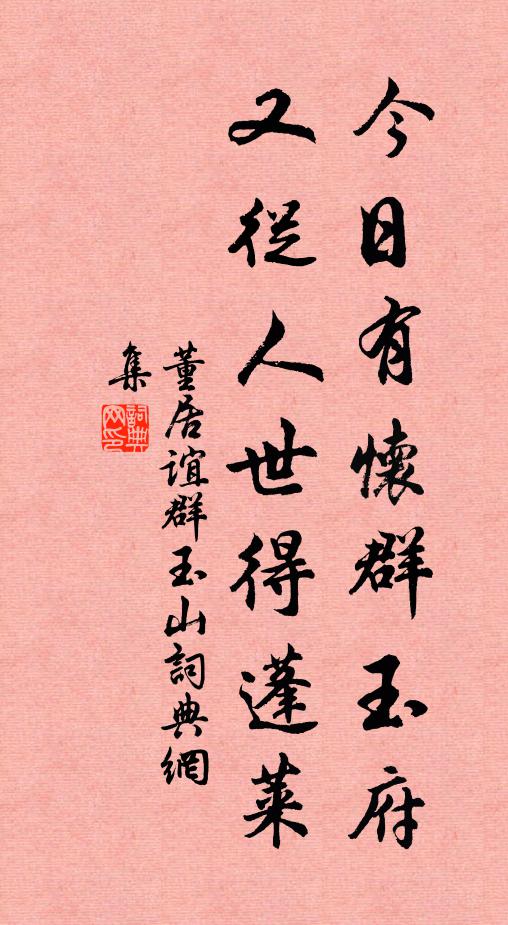 今日有懷群玉府
又從人世得蓬萊
董居誼群玉山詞典網
集
詞典網印